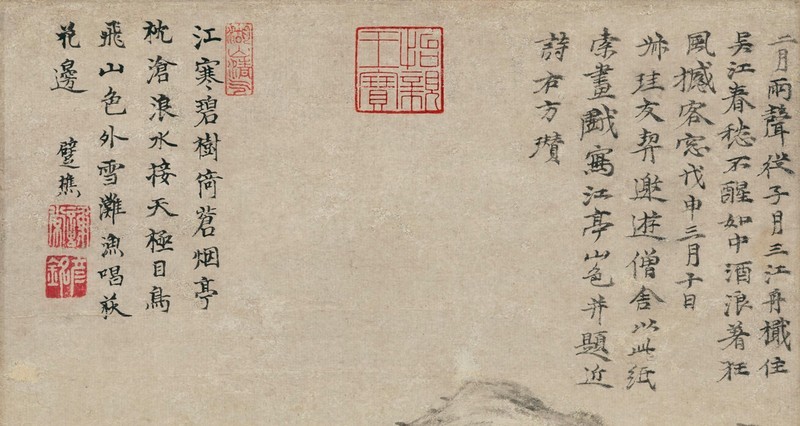 二月雨聲從子月三江舟檝住
吳江春愁不醒如中酒浪著狂
風撼客窓戊申三月子日
叔珪友契邀遊僧舍以此紙
索畫戲寫江亭山色并題近
詩右方瓚
怡親王寶
江寒碧樹倚蒼烟亭
枕滄浪水接天極目鳥
飛山色外雪灘漁唱荻
花邊 躄樵